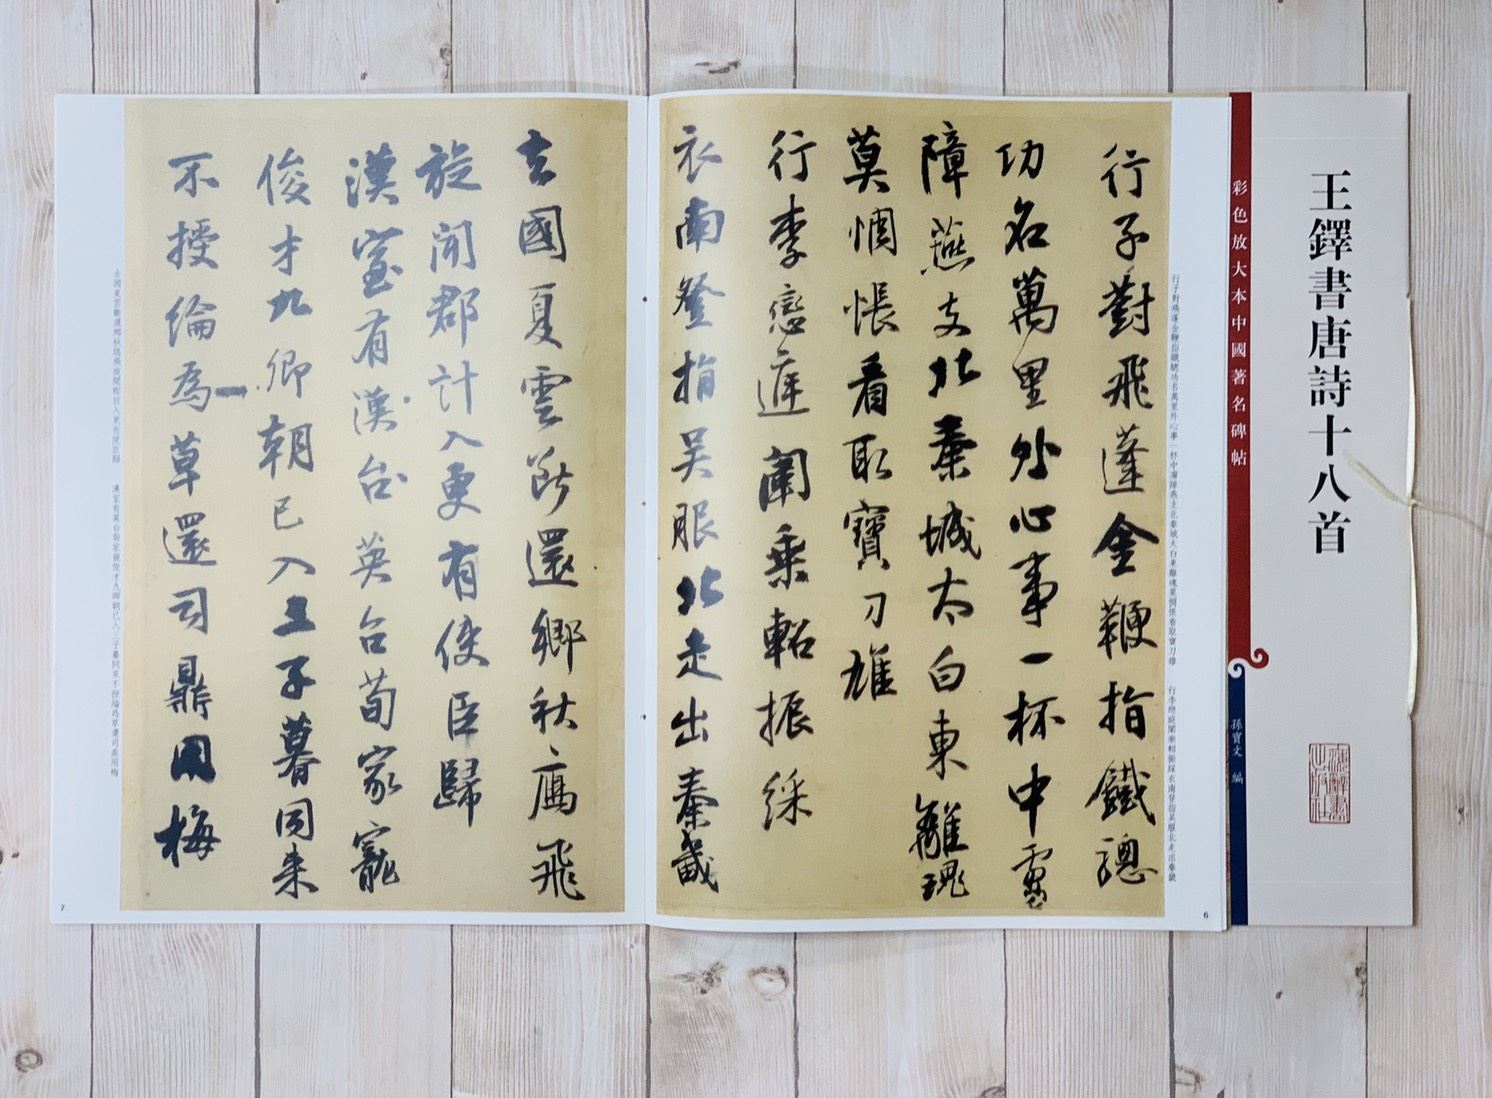 王鐸書唐詩十八首
彩色放大本中國著名碑帖
孫寶文 編
行子對飛蓬金鞭指鐵驄功名萬里外心事一杯中虜障燕支北秦城太白東離魂莫惆悵看取寶刀雄 行李戀庭闈乘軺振綵衣南登指吳服北走出秦畿
行子對飛蓬金鞭指鐵驄
功名萬里外心事一杯中虜
障燕支北秦城太白東離魂
莫惆悵看取寶刀雄
行李戀庭闈乘軺振綵
衣南登指吳服北走出秦畿
6
去國夏雲斷還鄉秋鴈飛
旋聞郡計入更有使臣歸
漢室有漢台英台荀家寵
俊才九卿朝已入三子暮同來
不授綸為草還司鼎用梅
去國夏雲斷還鄉秋鴈飛旋聞郡計入更有使臣歸 漢室有英台荀家寵俊才九卿朝已入三子暮同來不授綸為草還司鼎用梅
7